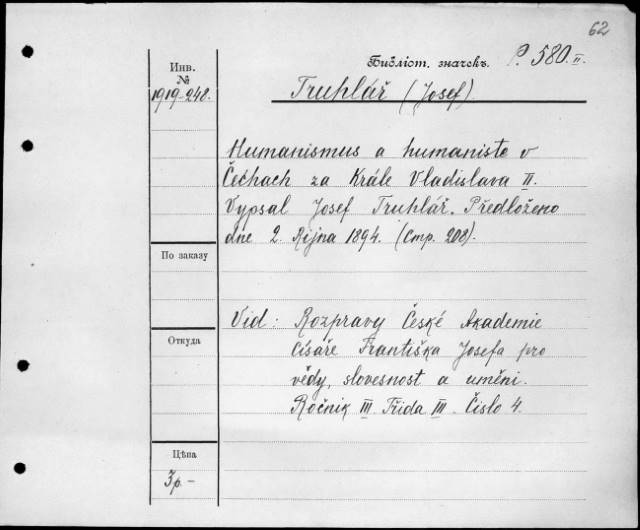 62
Инв.
№
1919-248.
Библіот. значекъ. P. 580.II.
Truhlář (Josef).
Humanismus a humaniste v
Čechach za Krále Vladislava II.
Vypsal Josef Truhlář. Předloženo
dne 2. Rijna 1894. (Стр. 208).
По заказу
Vid: Rozpravy České Akademie
Откуда
Císáře Františka Josefa pro
vědy, slovesnost a uměni.
Ročnik III. Třida III. Čislo 4.
Цѣна
3р.-